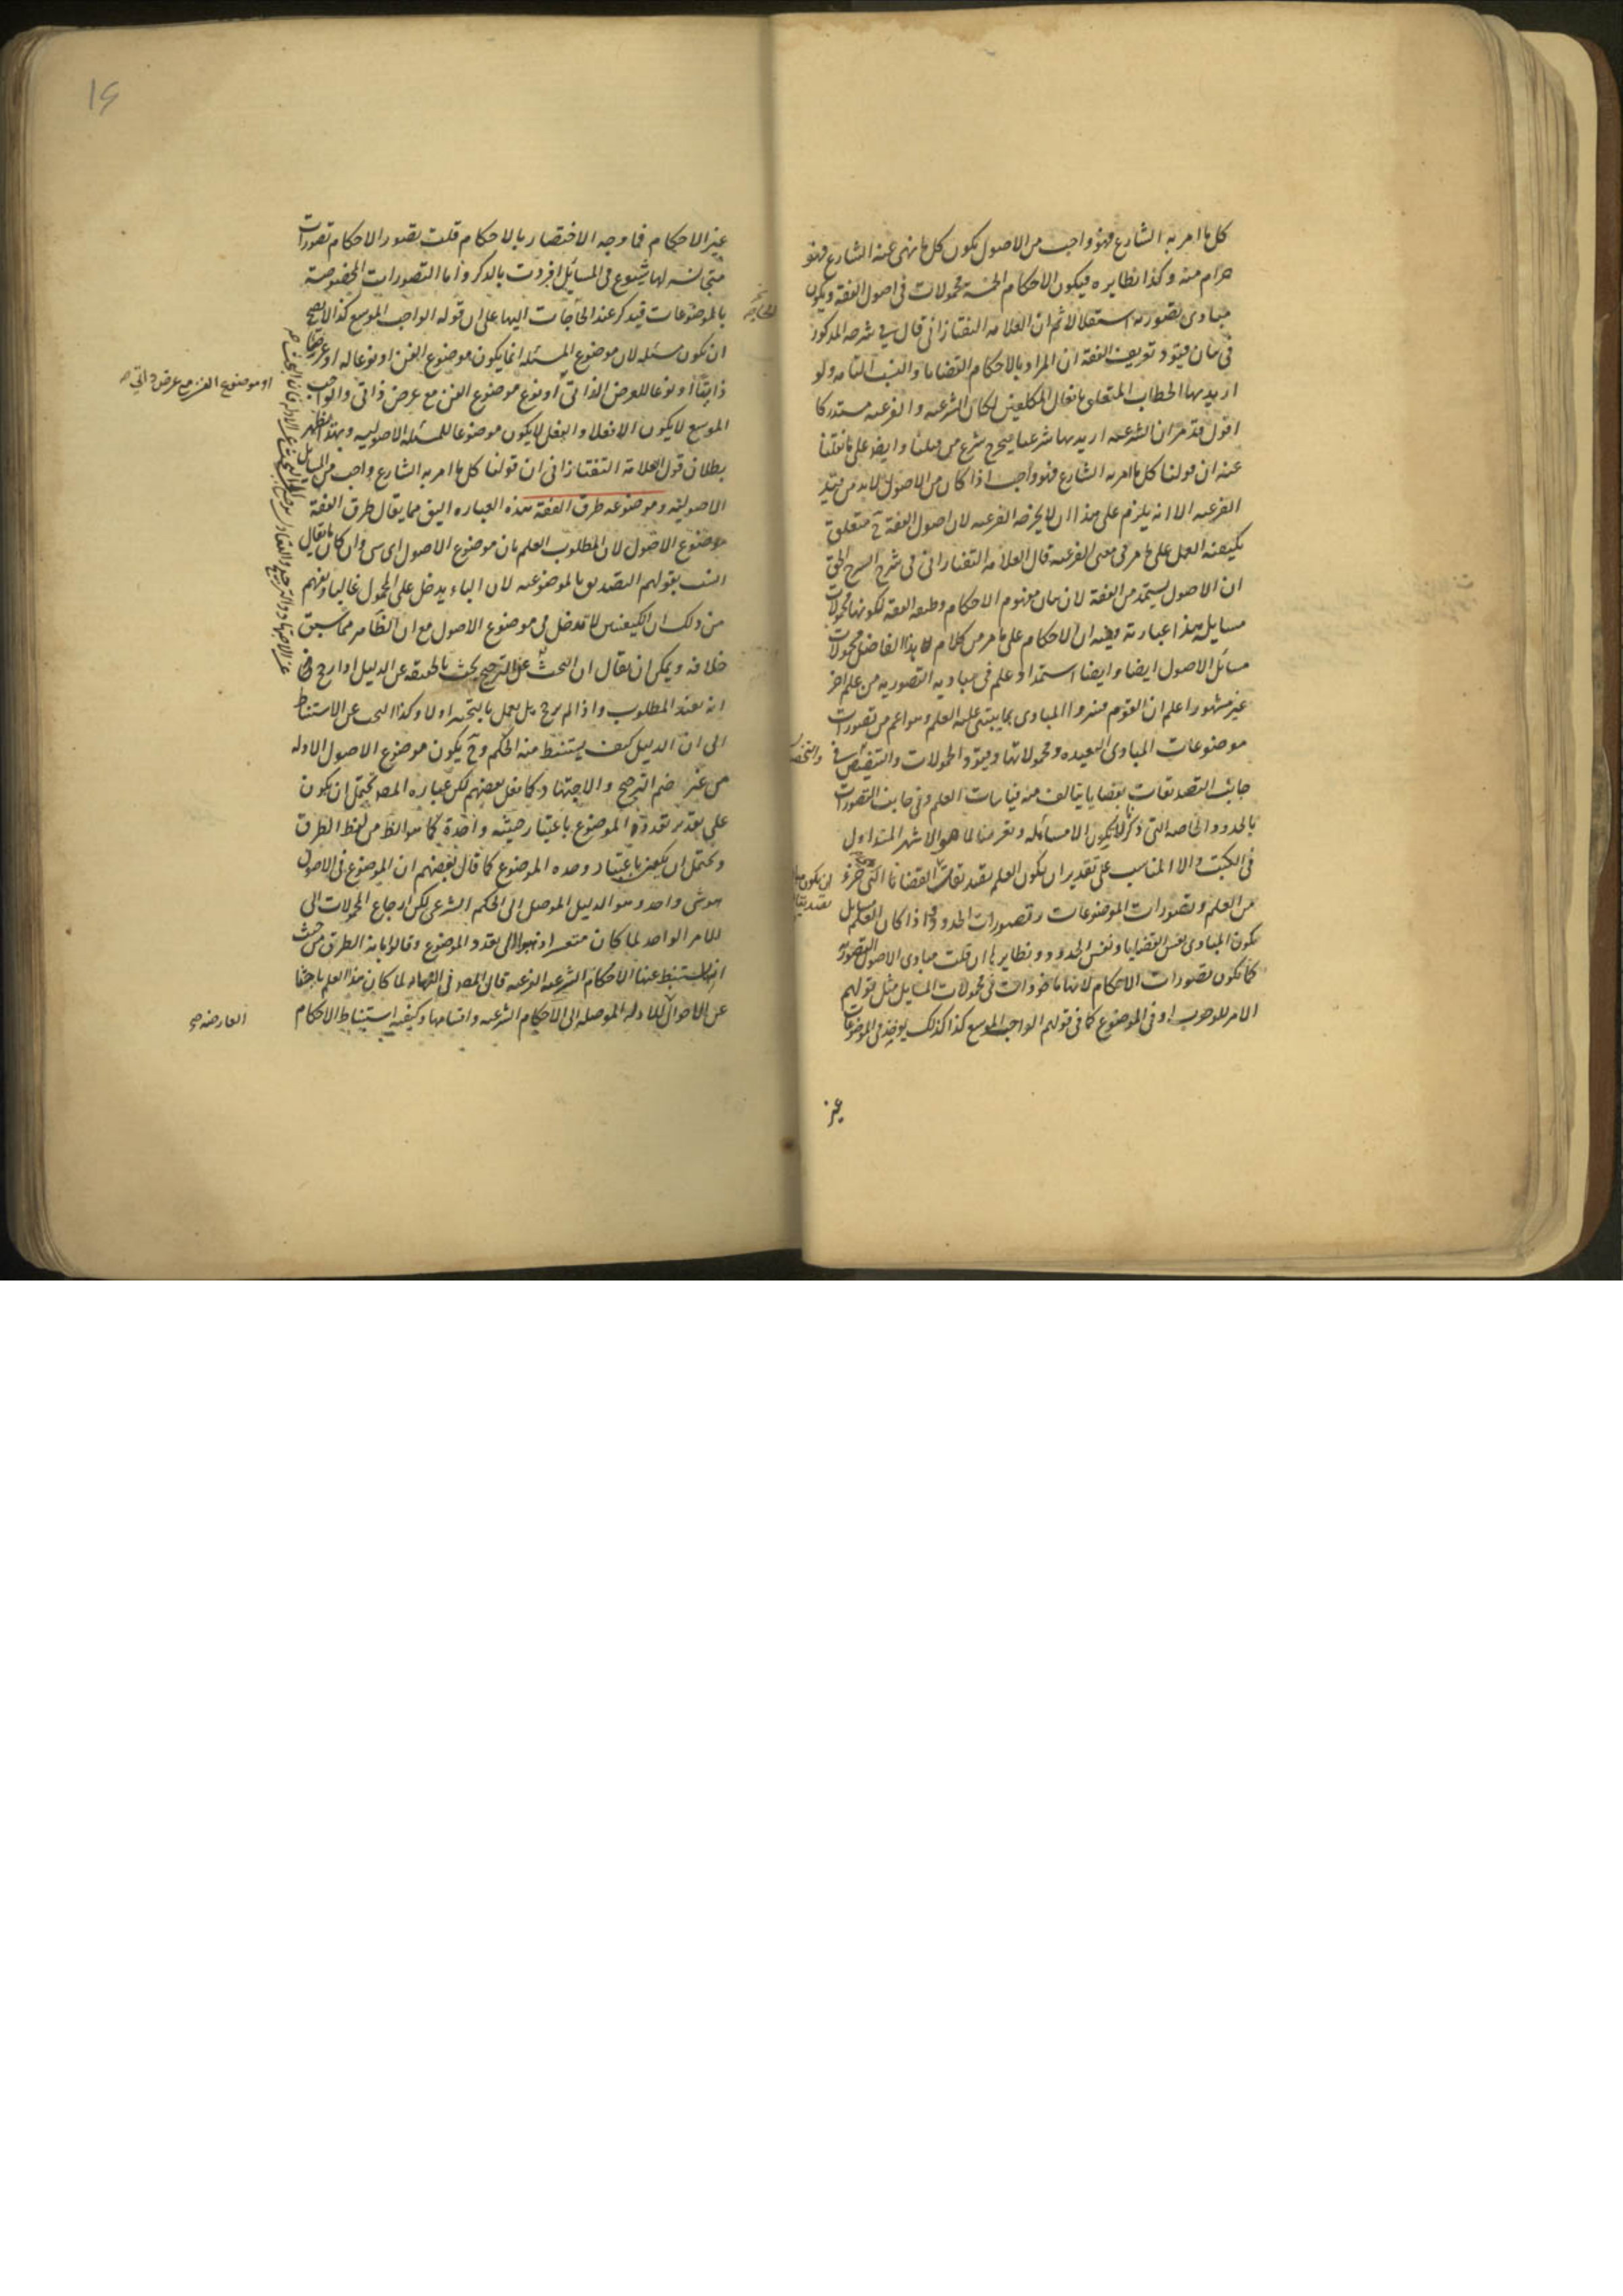 كل ما امر به الشارع فهو واجب من الاصول يكون كل ما نهى عنه الشارع فهو
حرام منه وكذا نظايره فيكون الاحكام الخمسة محمولات في اصول الفقه ويكون
مبادى تصوريه استقلالا ثم ان العلامه التفتازانى قال في شرحه المذكور
في بيان قيود تعريف الفقه ان المراد بالاحكام القضايا والنسب التامه ولو
اريد بها الخطاب المتعلق بافعال المكلفين لكان الشرعيه والفرعيه مستدركا
اقول قد مر ان الشرعيه اريد بها شرعنا فيخرج شرع من قبلنا وايضا على ما نقلنا
عنه ان قولنا كل ما امر به الشارع فهو واجب اذا كان من الاصول لا بد من قيد
الفرعيه الا انه يلزم على هذا ان لا يخرجه الفرعيه لان اصول الفقه ح متعلق
بكيفية العمل على ما مر في معنى الفرعيه قال العلامه التفتازانى في شرح الشرح الحق
ان الاصول يستمد من الفقه لان بيان مفهوم الاحكام وظيفه الفقه لكونها محمولات
مسايله هذا عبارته وفيه ان الاحكام على ما مر من كلام هذا الفاضل محمولات
مسائل الاصول ايضا وايضا استمداد علم في مباديه التصوريه من علم اخر
غير مشهور اعلم ان القوم فسروا المبادى بما يبتنى عليه العلم وهو اعم من تصورات
موضوعات المبادى البعيده ومحمولاتها وقيود المحمولات والتخصيص في
جانب التصديقات بقضايا يتالف منه قياسات العلم وفي جانب التصورات
بالحدود الخاصه التى ذكر لا يكون الا مسائله وتعريفنا لما هو الاشهر المتداول
في الكتب والا المناسب على تقدير ان يكون العلم تصديقات القضايا التى جزء
من العلم وتصورات الموضوعات وتصورات الحدود واذا كان العلم مسايل
يكون المبادى نفس القضايا ونفس الحدود ونظايرها ان قلت مبادى الاصول التصوريه
كما تكون تصورات الاحكام لانها ماخوذات في محمولات المسايل مثل قولهم
الامر للوجوب او في الموضوع كما في قولهم الواجب الموسع كذا كذلك يوخذ في الموضوعات
غير
غير الاحكام فما وجه الاختصار بالاحكام قلت تصور الاحكام تصورات
متجانسه لها شيوع في المسائل افردت بالذكر واما التصورات المخصوصة
بالموضوعات فيذكر عند الحاجات اليها على ان قوله الواجب الموسع كذا لا يصح
ان تكون مسئله لان موضوع المسئله انما يكون موضوع الفن او نوعا له او عرضا
ذاتيا او نوعا للعرض الذاتى او نوع موضوع الفن مع عرض ذاتى والواجب
الموسع لا يكون الا فعلا والفعل لا يكون موضوعا للمسئله الاصوليه وبهذا يظهر
بطلان قول العلامة التفتازانى ان قولنا كل ما امر به الشارع واجب من المسايل
الاصوليه وموضوعه طرق الفقه هذه العباره اليق مما يقال طرق الفقه
موضوع الاصول لان المطلوب العلم بان موضوع الاصول اى شى وان كان ما يقال
انسب بقولهم التصديق بالموضوعيه لان الباء يدخل على المحمول غالبا ويفهم
من ذلك ان الكيفيتين لا تدخل في موضوع الاصول مع ان الظاهر مما سبق
خلافه ويمكن ان يقال ان البحث عن الترجيح يبحث بالحقيقه عن الدليل اذا رجح
انه يفيد المطلوب واذا لم يرجح بل يعمل بالتخيير اولا وكذا البحث عن الاستنباط
الى ان الدليل كيف يستنبط منه الحكم وح يكون موضوع الاصول الادله
من غير ضم الترجيح والاجتهاد كما نقل بعضهم لكن عباره المصه تحتمل ان يكون
على تقدير تعدد الموضوع باعتبار حيثيه واحدة كما هو الظ من لفظ الطرق
وتحتمل ان يكون باعتبار وحده الموضوع كما قال بعضهم ان الموضوع في الاصول
هو شى واحد وهو الدليل الموصل الى الحكم الشرعى لكن ارجاع المحمولات الى
الامر الواحد لما كان متعسرا ذهبوا الى تعدد الموضوع وقالوا هذه الطرق من حيث
انها يستنبط عنها الاحكام الشرعيه الفرعيه قال المصه في النهايه لما كان هذا العلم باحثا
عن الاحوال للادله الموصله الى الاحكام الشرعيه واقسامها وكيفيه استنباط الاحكام
او موضوع الفن مع عرض ذاتي
العارضه صح
١٤